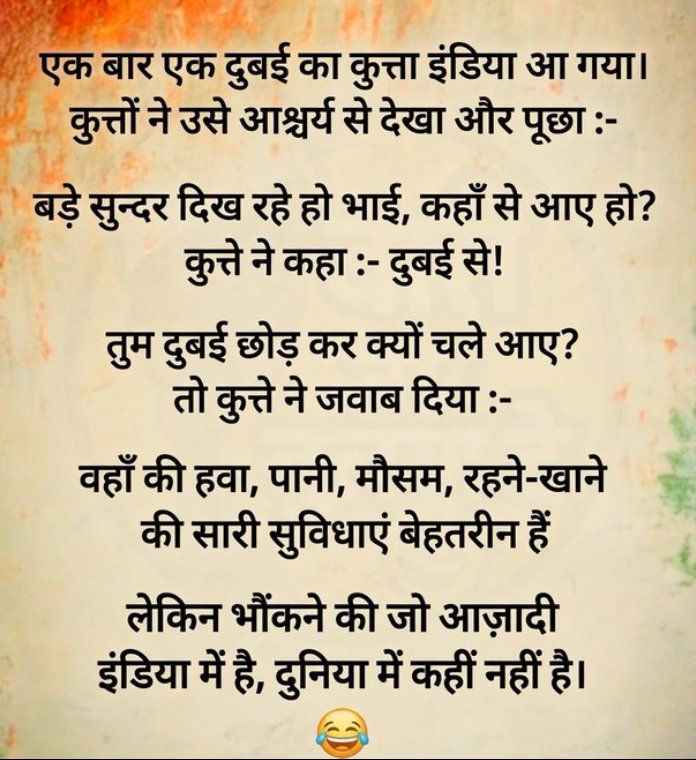 एक बार एक दुबई का कुत्ता इंडिया आ गया।
कुत्तों ने उसे आश्चर्य से देखा और पूछा :-
बड़े सुन्दर दिख रहे हो भाई, कहाँ से आए हो?
कुत्ते ने कहा :- दुबई से!
तुम दुबई छोड़ कर क्यों चले आए?
तो कुत्ते ने जवाब दिया :-
वहाँ की हवा, पानी, मौसम, रहने-खाने
की सारी सुविधाएं बेहतरीन हैं
लेकिन भौंकने की जो आज़ादी
इंडिया में है, दुनिया में कहीं नहीं है।
😂